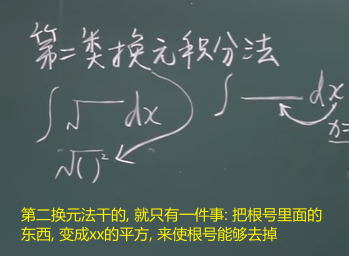 第二类换元积分法
∫√‾ dx ∫ — dx
√( )² x=
第二换元法干的, 就只有一件事: 把根号里面的
东西, 变成xx的平方, 来使根号能够去掉